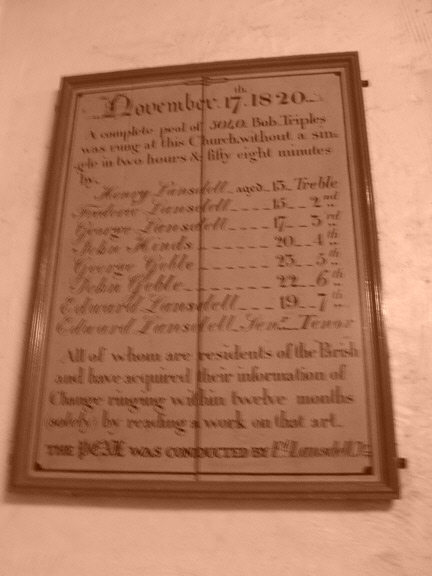 November. 17.th 1820
A complete peal of 5040 Bob Triples
was rung at this Church, without a sin=
gle in two hours & fifty eight minutes
by.
Henry Lansdell aged 13. Treble
Lansdell 15 2nd
George Lansdell 17 3rd
John Hinds 20 4th
George Goble 23 5th
John Goble 22 6th
Edward Lansdell 19 7th
Edward Lansdell Senr Tenor
All of whom are residents of the Parish
and have acquired their information of
Change ringing within twelve months
solely by reading a work on that art.
THE PEAL WAS CONDUCTED BY Ed. Lansdell